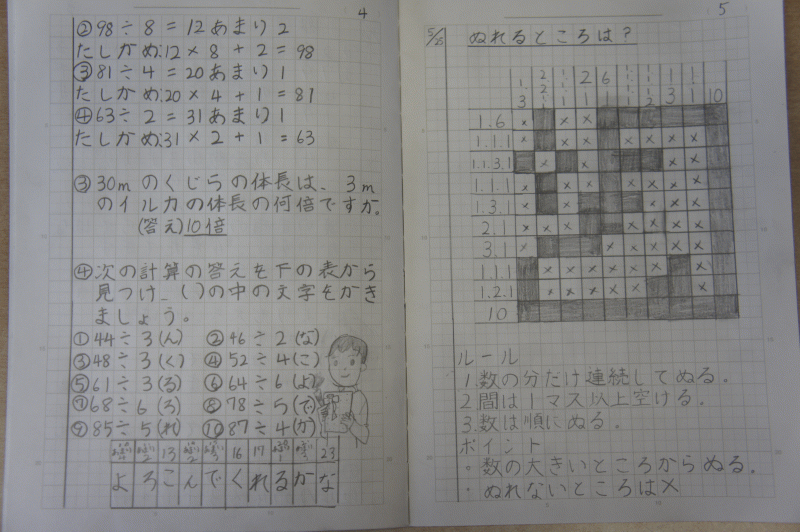 4
②98÷8=12あまり2
たしかめ:12×8+2=98
③81÷4=20あまり1
たしかめ:20×4+1=81
④63÷2=31あまり1
たしかめ:31×2+1=63
③30mのくじらの体長は、3m
のイルカの体長の何倍ですか。
(答え)10倍
④次の計算の答えを下の表から
見つけ、( )の中の文字をかき
ましょう。
①44÷3(ん) ②46÷2(な)
③48÷3(く) ④52÷4(こ)
⑤61÷3(る) ⑥64÷6(よ)
⑦68÷6(ろ) ⑧78÷5(で)
⑨85÷5(れ) ⑩87÷4(か)
13 16 17 23
よろこんでくれるかな
5
5/25 ぬれるところは?
2 6 10
1.6
1.1.1
1.1.3.1
1.1.1
1.3.1
2.1
3.1
1.1.1
1.2.1
10
ルール
1.数の分だけ連続してぬる。
2.間は1マス以上空ける。
3.数は順にぬる。
ポイント
・数の大きいところからぬる。
・ぬれないところは×